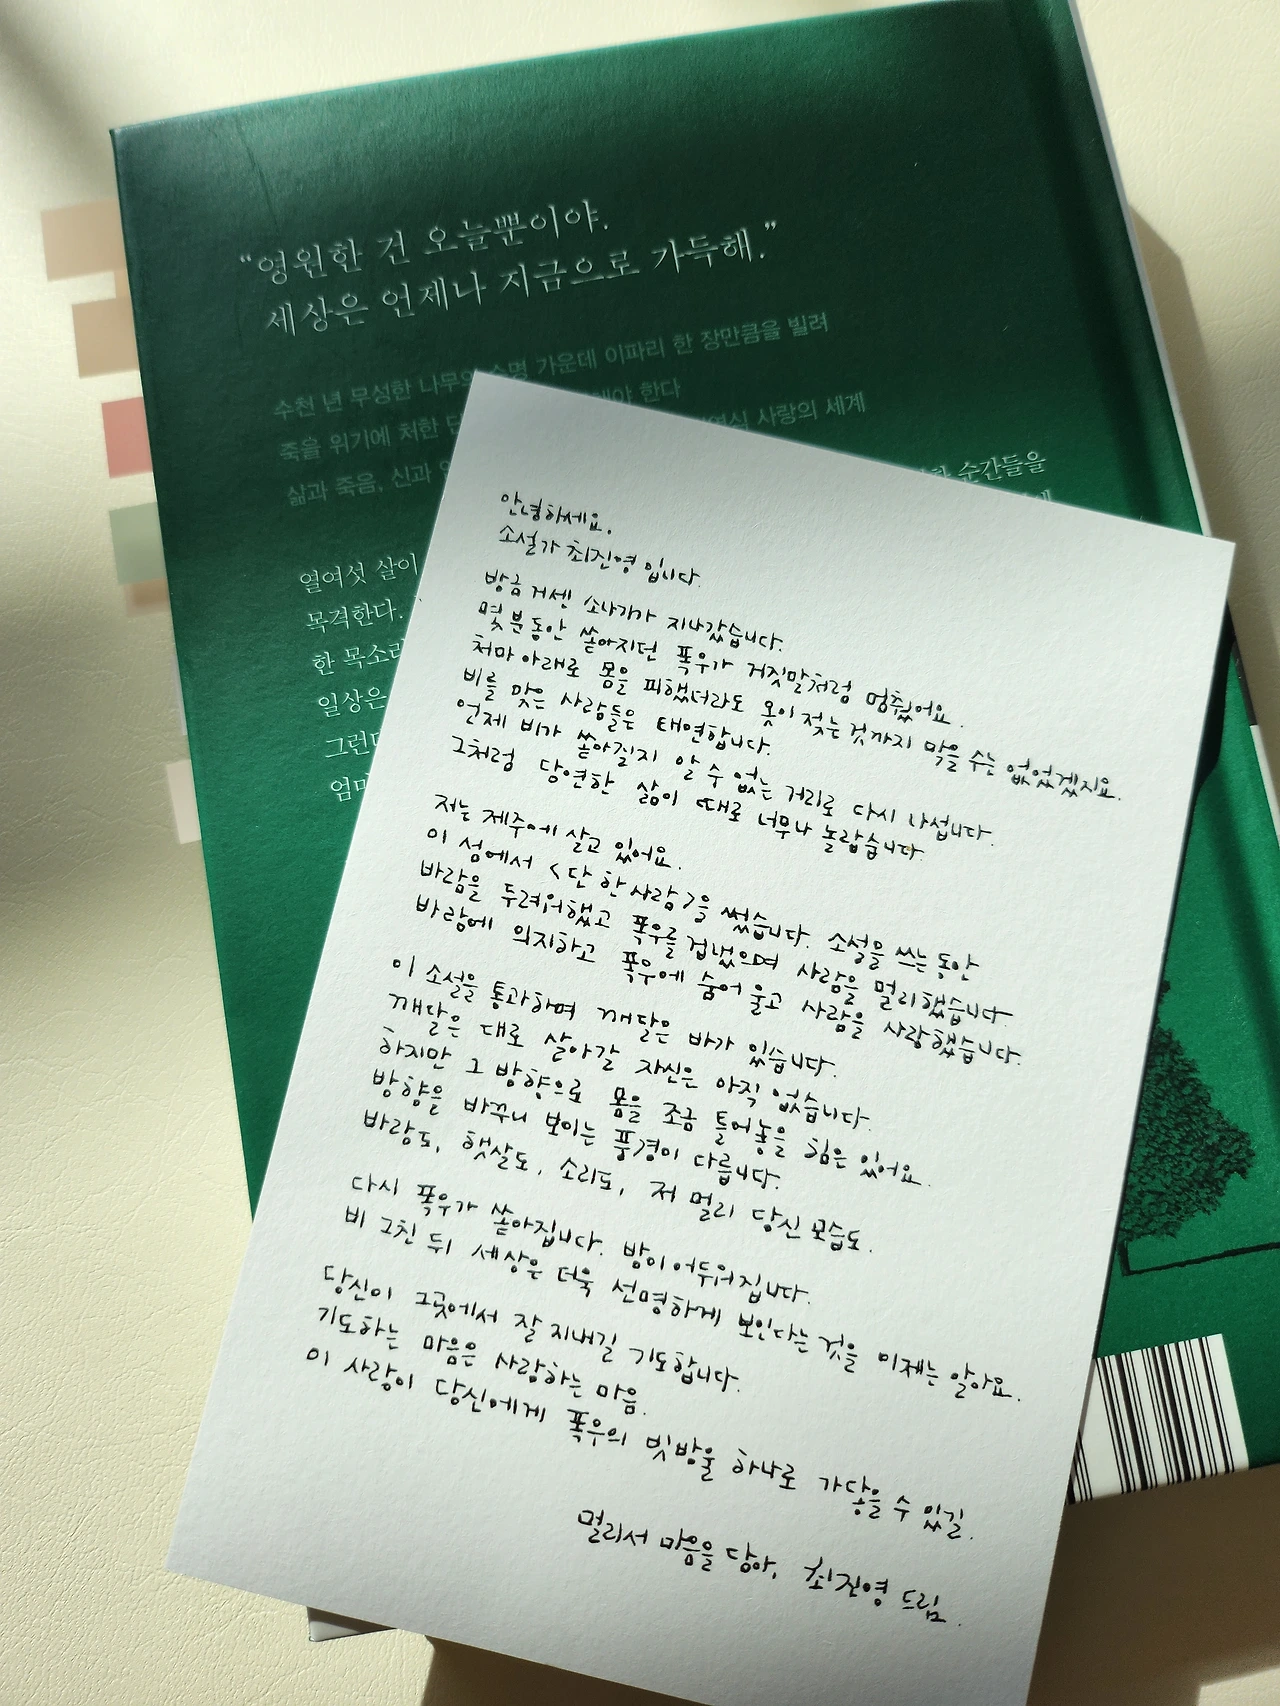 “영원한 건 오늘뿐이야.
세상은 언제나 지금으로 가득해.”
수천 년 무성한 나무의 수명 가운데 이파리 한 장만큼을 빌려
죽을 위기에 처한 단 해야 한다
삶과 죽음, 신과 사랑의 세계
순간들을
열여섯 살이
목격한다.
한 목소리
일상은
그런데
엄마
안녕하세요.
소설가 최진영입니다.
방금 거센 소나기가 지나갔습니다.
몇 분 동안 쏟아지던 폭우가 거짓말처럼 멈추었어요.
처마 아래로 몸을 피했더라도 옷이 젖는 것까지 막을 수는 없었겠지요.
비를 맞은 사람들은 태연합니다.
언제 비가 쏟아질지 알 수 없는 거리로 다시 나섭니다.
그처럼 당연한 삶이 때로 너무나 놀랍습니다.
저는 제주에 살고 있어요.
이 섬에서 <단 한 사람>을 썼습니다. 소설을 쓰는 동안
바람을 두려워했고 폭우를 겁냈으며 사람을 멀리했습니다.
바람에 의지하고 폭우에 숨어 울고 사람을 사랑했습니다.
이 소설을 통과하며 깨달은 바가 있습니다.
깨달은 대로 살아갈 자신은 아직 없습니다.
하지만 그 방향으로 몸을 조금 틀어놓을 힘은 있어요.
방향을 바꾸니 보이는 풍경이 다릅니다.
바람도, 햇살도, 소리도, 저 멀리 당신 모습도.
다시 폭우가 쏟아집니다. 방이 어두워집니다.
비 그친 뒤 세상은 더욱 선명하게 보인다는 것을 이제는 알아요.
당신이 그곳에서 잘 지내길 기도합니다.
기도하는 마음은 사랑하는 마음.
이 사랑이 당신에게 폭우의 빗방울 하나로 가닿을 수 있길.
멀리서 마음을 담아, 최진영 드림.